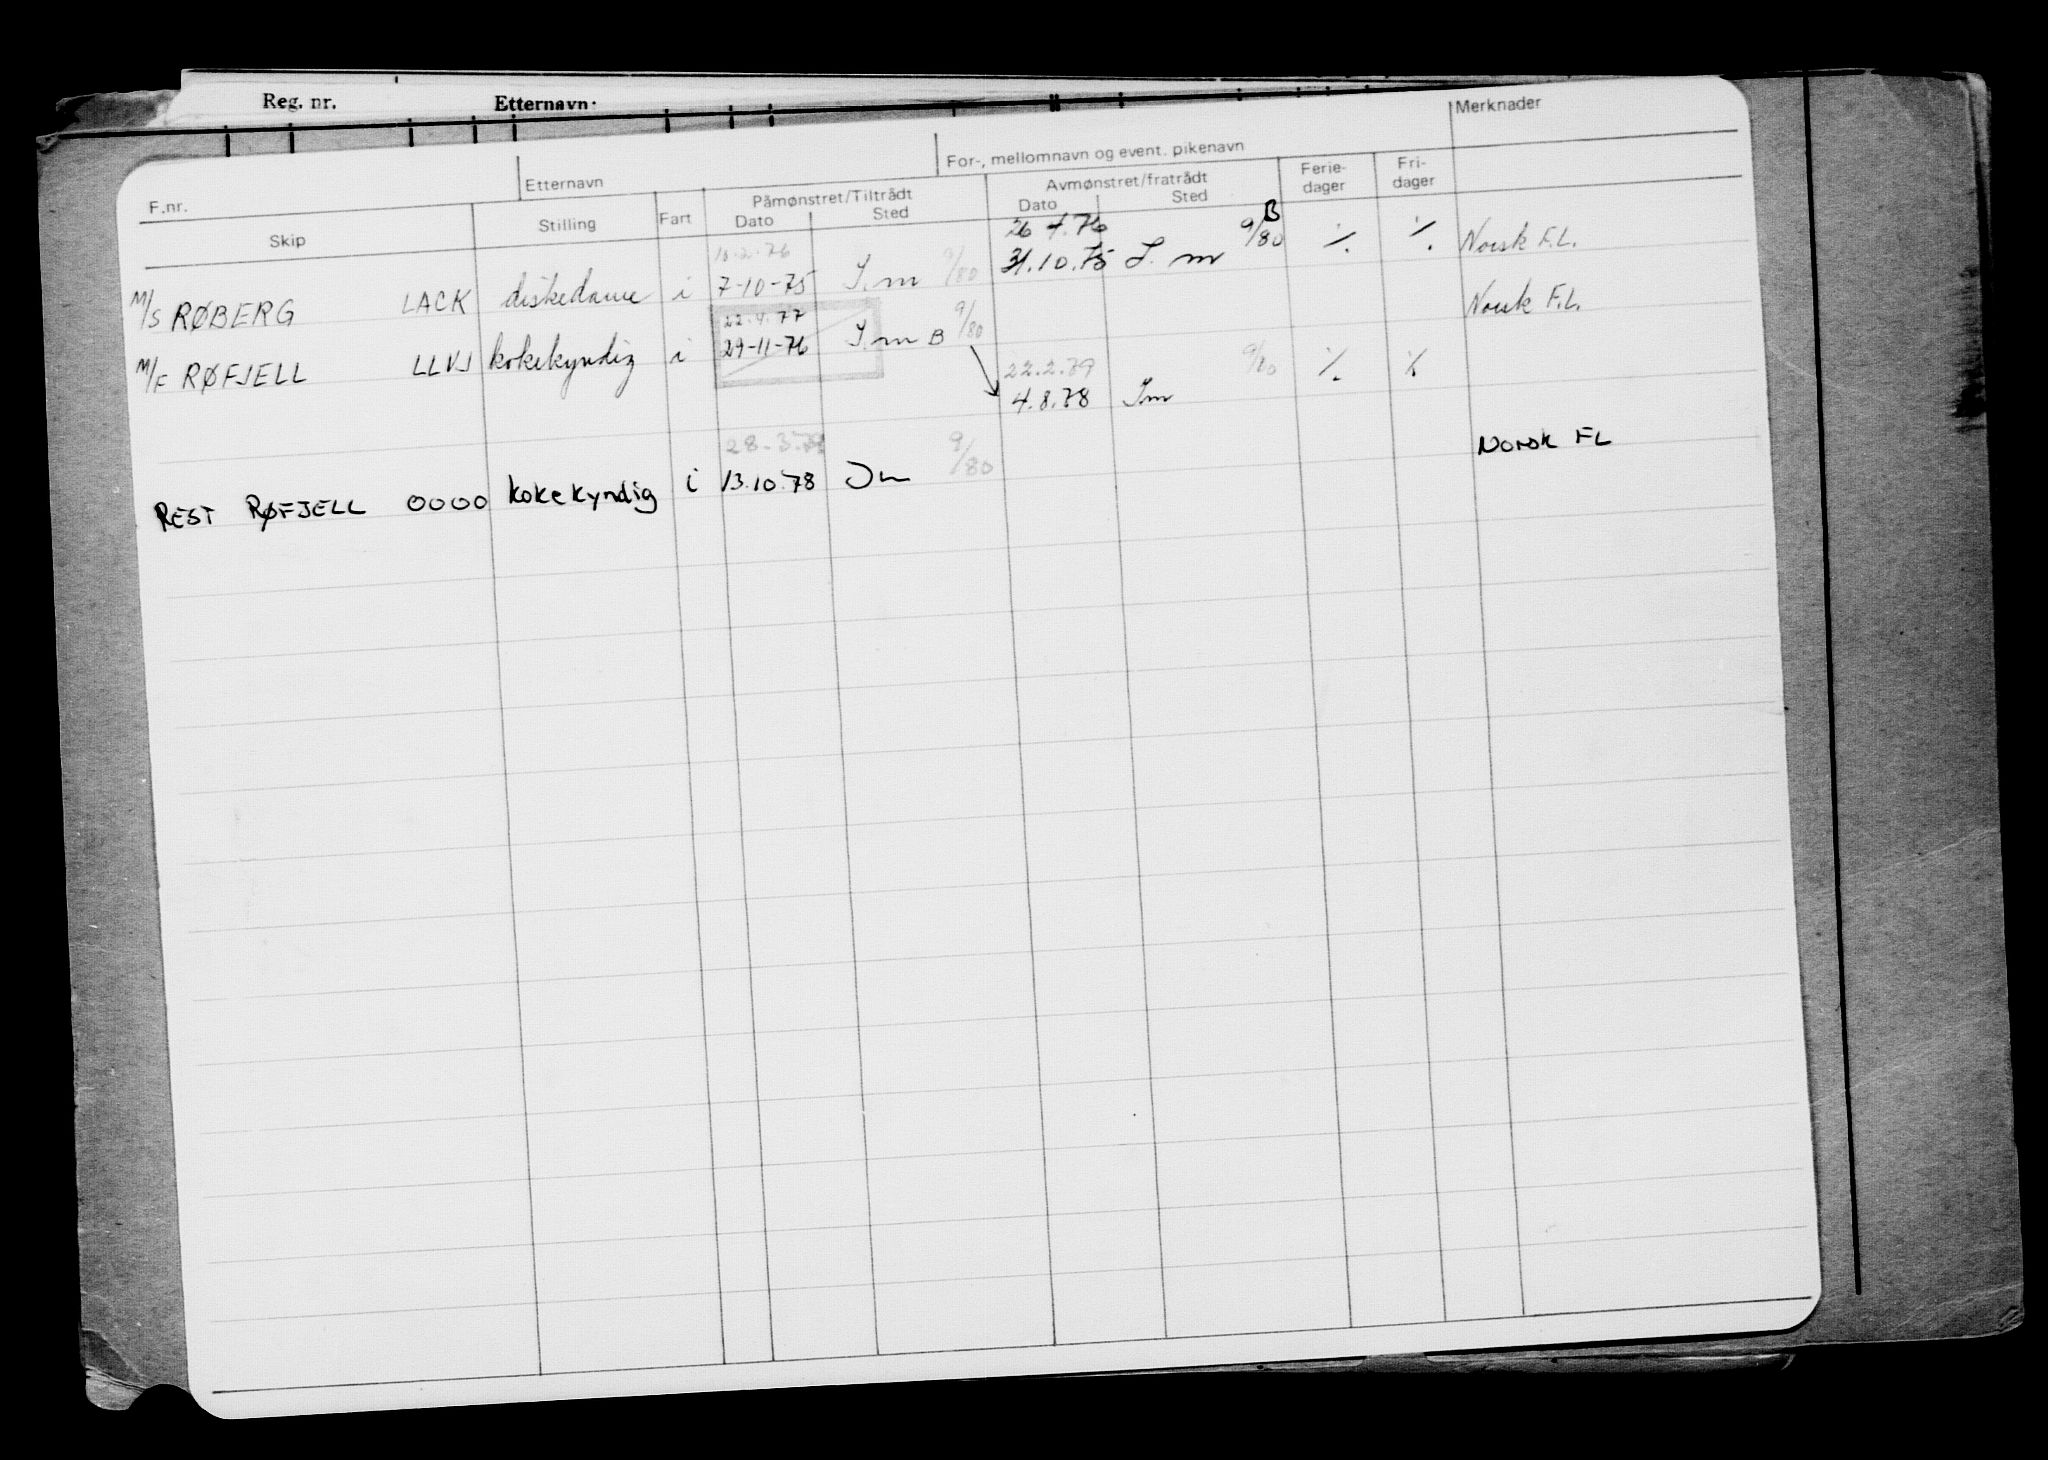 Reg. nr. Etternavn:
Merknader
F.nr. Etternavn For-, mellomnavn og event. pikenavn
Skip Stilling Fart Påmønstret/Tiltrådt Avmønstret/fratrådt Ferie-dager Fri-dager
Dato Sted Dato Sted
10.2.76 9/80 26.4.76 9/80 B
M/S RØBERG LACK diskedame i 7-10-75 I.m 31.10.75 I. m % % Norsk F.L.
22.4.77 9/80
M/F RØFJELL LLVJ kokekyndig i 29-11-76 I.m B Norsk F.L.
22.2.79 9/80
4.8.78 I.m % %
28.3.79 9/80
REST RØFJELL OOOO kokekyndig i 13.10.78 Norsk FL